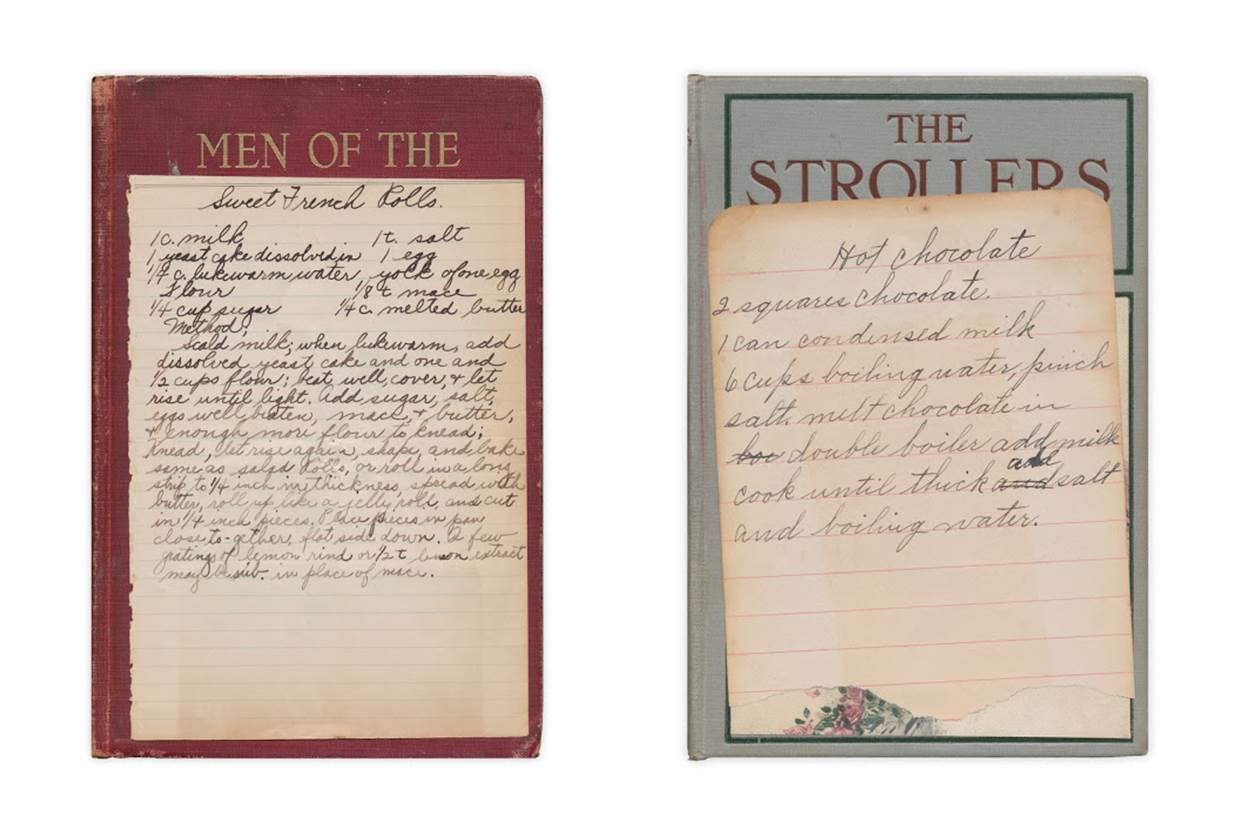 MEN OF THE
Sweet French Rolls.
1 c. milk 1 t. salt
1 yeast cake dissolved in 1 egg
1/4 c. lukewarm water, yolk of one egg
Flour 1/8 t mace
1/4 cup sugar 1/4 c. melted butter
Method;
Scald milk; when lukewarm, add
dissolved yeast cake and one and
1/2 cups flour; beat well, cover, + let
rise until light. Add sugar, salt,
eggs well beaten, mace, + butter,
+ enough more flour to knead;
knead, let rise again, shape, and bake
same as salad rolls, or roll in a long
strip to 1/4 inch in thickness, spread with
butter, roll up like a jelly roll, and cut
in 1/4 inch pieces. Place pieces in pan
close to-gether, flat side down. A few
gratings of lemon rind or 1/2 t lemon extract
may be sub. in place of mace.
THE
STROLLERS
Hot chocolate
2 squares chocolate.
1 can condensed milk
6 cups boiling water, pinch
salt. melt chocolate in
boi double boiler add milk
cook until thick and add salt
and boiling water.